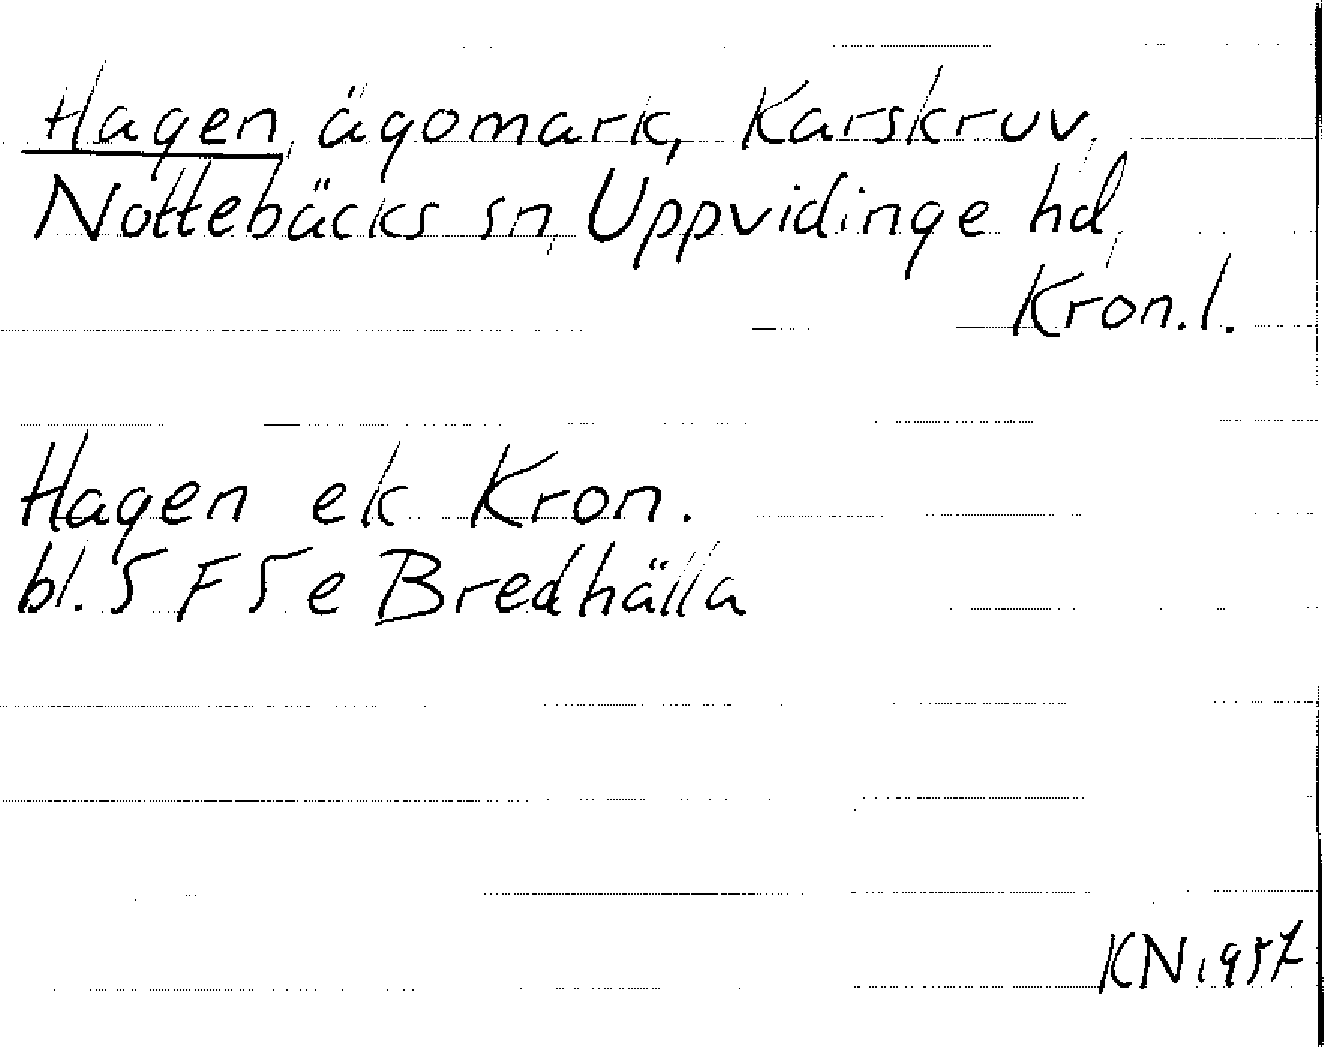 Hagen, ägomark, Karskruv,
Nottebäcks sn, Uppvidinge hd,
Kron.l.
Hagen ek Kron.
bl. 5 F 5 e Bredhälla
KN 1957